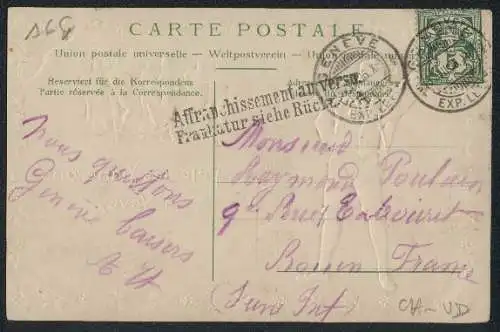 168
CARTE POSTALE
Union postale universelle — Weltpostverein — Union
Reserviert für die Korrespondenz
Partie réservée à la Correspondance.
Affranchissement au verso
Frankatur siehe Rücks.
GENÈVE
EXP. LETT
GENÈVE
5
EXP. LETT
nous quittons
Genève baisers
Monsieur
Raymond Poulain
Rue
Rouen France
(Seine Inf)
CH-VD